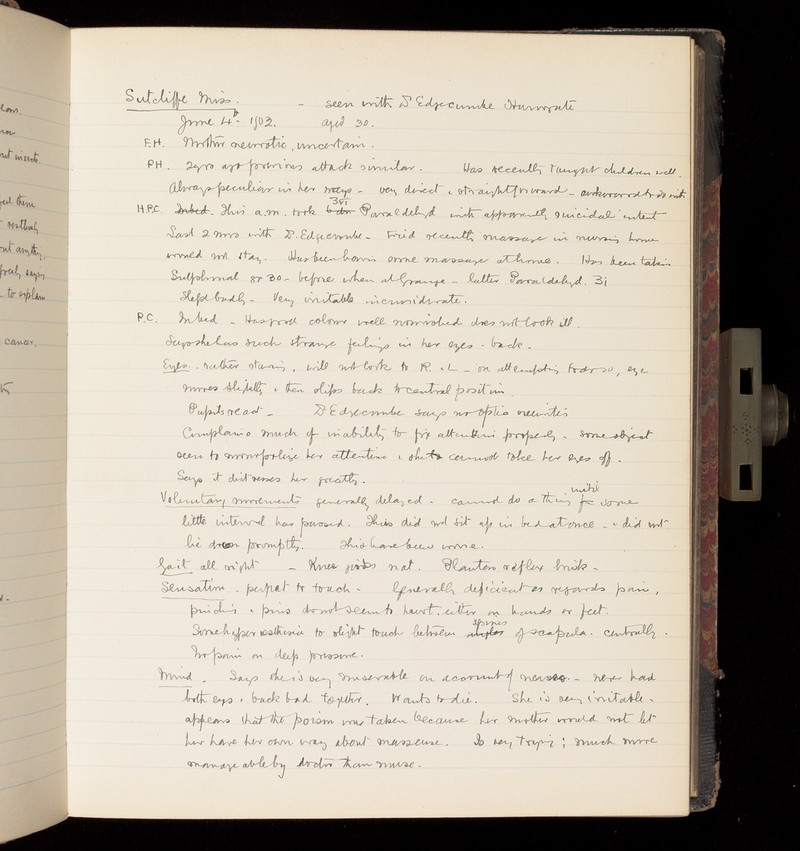 Sutcliffe Miss. - seen with Dr Edgecumbe Harrogate
June 4th 1902. aged 30.
F.H. Mother neurotic, uncertain.
P.H. 2 yrs ago previous attack similar. Has recently taught children well.
Always peculiar in her ways - very direct & straightforward - awkward to do with
H.P.C. In bed. This a.m. took 3vi Paraldehyd with apparently suicidal intent
Last 2 mos with Dr Edgecumbe - Tried recently massage in nursing home
would not stay. Has been having some massage at home. Has been taking
Sulphonal gr 30 - before when at Grange - latter Paraldehyd. 3i
Slept badly - Very irritable inconsiderate.
P.C. In bed - Has good colour well nourished does not look ill.
Says she has such strange feelings in her eyes - back.
Eyes. rather staring, will not look to R. & L - on attempting to do so, eye
moves slightly & then slips back to central position.
Pupils react - Dr Edgecumbe says no optic neuritis
Complains much of inability to fix attention properly - some object
seems to monopolise her attention & she cannot take her eyes off.
Says it distresses her greatly.
Voluntary movements generally delayed - cannot do a thing until some
little interval has passed. Thus did not sit up in bed at once - & did not
lie down promptly. This have been worse.
Gait all right - Knee jerks nat. Plantar reflex brisk -
Sensation. perfect to touch - Generally deficient as regards pain,
pinching & pins do not seem to hurt. either on hands or feet.
Some hyperaesthesia to slight touch between spines of scapula. centrally.
No pain on deep pressure.
Mind. Says she is very miserable on account of nerves - never had
both eyes & back bad together. Wants to die. She is very irritable -
appears that the poison was taken because her mother would not let
her have her own way about masseuse. Is very trying; much more
manageable by doctor than nurse.